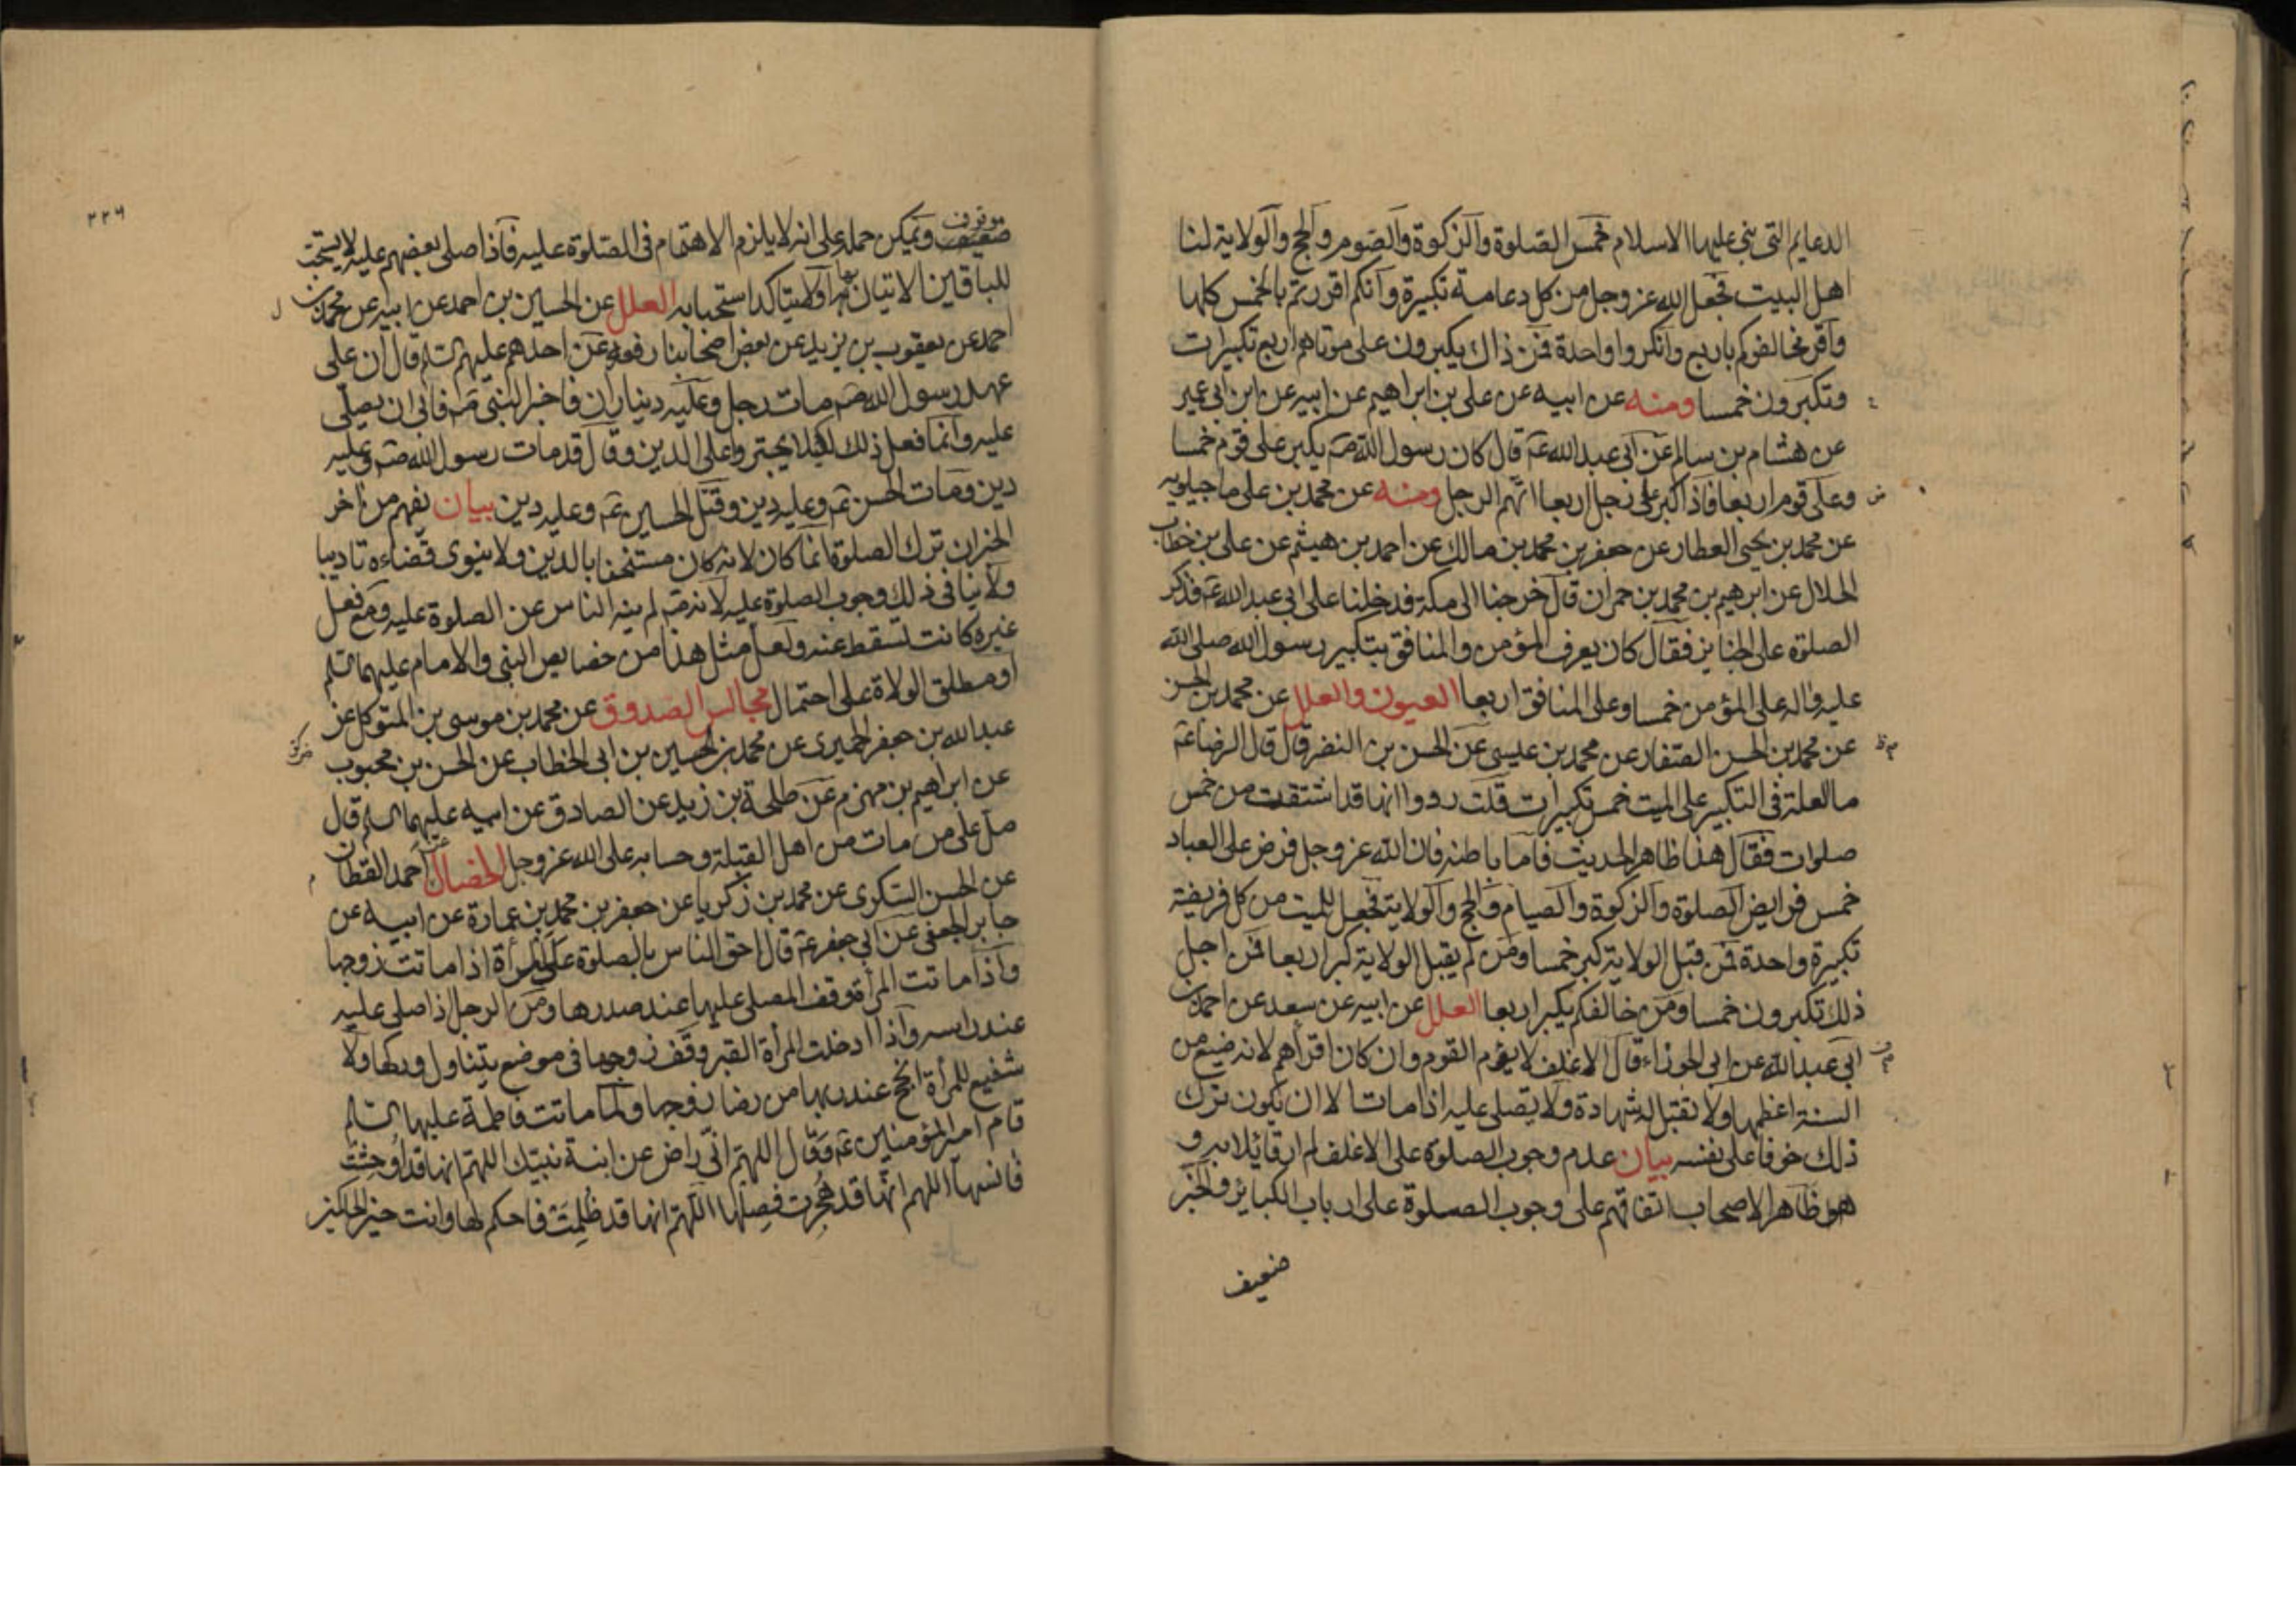 الدعايم التى بنى عليها الاسلام خمس الصلوة والزكوة والصوم والحج والولاية لنا
اهل البيت فجعل الله عز وجل من كل دعامة تكبيرة وانكم اقررتم بالخمس كلها
واقر مخالفوكم باربع وانكروا واحدة فمن ذاك يكبرون على موتاهم اربع تكبيرات
وتكبرون خمسا ومنه عن ابيه عن على بن ابراهيم عن ابيه عن ابن ابى عمير
عن هشام بن سالم عن ابى عبد الله عم قال كان رسول الله صم يكبر على قوم خمسا
وعلى قوم اربعا فاذا كبر على رجل اربعا اتهم الرجل ومنه عن محمد بن على ماجيلويه
عن محمد بن يحيى العطار عن جعفر بن محمد بن مالك عن احمد بن هيثم عن على بن خطاب
الخلال عن ابرهيم بن محمد بن حمران قال خرجنا الى مكة فدخلنا على ابى عبد الله عم فذكر
الصلوة على الجنايز فقال كان يعرف المؤمن والمنافق بتكبير رسول الله صلى الله
عليه واله على المؤمن خمسا وعلى المنافق اربعا العيون والعلل عن محمد بن الحسن
عن محمد بن الحسن الصفار عن محمد بن عيسى عن الحسن بن النضر قال قال الرضا عم
ما العلة فى التكبير على الميت خمس تكبيرات قلت رووا انها قد اشتقت من خمس
صلوات فقال هذا ظاهر الحديث فاما باطنه فان الله عز وجل فرض على العباد
خمس فرايض الصلوة والزكوة والصيام والحج والولاية فجعل للميت من كل فريضة
تكبيرة واحدة فمن قبل الولاية كبر خمسا ومن لم يقبل الولاية كبر اربعا فمن اجل
ذلك تكبرون خمسا ومن خالفكم يكبر اربعا العلل عن ابيه عن سعد عن احمد بن
ابى عبد الله عن ابى الجوزاء قال الاغلف لا يؤم القوم وان كان اقرأهم لانه ضيع من
السنة اعظمها ولا تقبل له شهادة ولا يصلى عليه اذا مات الا ان يكون ترك
ذلك خوفا على نفسه بيان عدم وجوب الصلوة على الاغلف لم ار قائلا به و
هو ظاهر الاصحاب اتفاقهم على وجوب الصلوة على ارباب الكبائر والخبر
ضعيف
٢٢٦
موقوف
ضعيف ويمكن حمله على انه لا يلزم الاهتمام فى الصلوة عليه فاذا صلى بعضهم عليه لا يستحب
للباقين الاتيان بها او لا يتاكد استحبابه العلل عن الحسين بن احمد عن ابيه عن محمد بن
احمد عن يعقوب بن يزيد عن بعض اصحابنا رفعه عن احدهم عليهم السلم قال ان على
عهد رسول الله صم مات رجل وعليه ديناران فاخبر النبى صم فابى ان يصلى
عليه وانما فعل ذلك لكيلا يجتروا على الدين وقال قد مات رسول الله صم وعليه
دين ومات الحسن عم وعليه دين وقتل الحسين عم وعليه دين بيان يفهم من اخر
الخبر ان ترك الصلوة انما كان لانه كان مستخفا بالدين ولا ينوى قضاءه تاديبا
ولا ينافى ذلك وجوب الصلوة عليه لانه صم لم ينه الناس عن الصلوة عليه ومع فعل
غيره كانت تسقط عنه ولعل مثل هذا من خصايص النبى والامام عليهما السلم
او مطلق الولاة على احتمال مجالس الصدوق عن محمد بن موسى بن المتوكل عن
عبد الله بن جعفر الحميرى عن محمد بن الحسين بن ابى الخطاب عن الحسن بن محبوب
عن ابراهيم بن مهزم عن طلحة بن زيد عن الصادق عن ابيه عليهما السلم قال
صل على من مات من اهل القبلة وحسابه على الله عز وجل الخصال عن احمد القطان
عن الحسن السكرى عن محمد بن زكريا عن جعفر بن محمد بن عمارة عن ابيه عن
جابر الجعفى عن ابى جعفر عم قال احق الناس بالصلوة على المرأة اذا ماتت زوجها
واذا ماتت المرأة وقف المصلى عليها عند صدرها ومن الرجل اذا صلى عليه
عند راسه واذا ادخلت المرأة القبر وقف زوجها فى موضع يتناول وركها ولا
شفيع للمرأة انجح عند ربها من رضا زوجها ولما ماتت فاطمة عليها السلم
قام امير المؤمنين عم وقال اللهم انى راض عن ابنة نبيك اللهم انها قد اوحشت
فانسها اللهم انها قد هجرت فصلها اللهم انها قد ظلمت فاحكم لها وانت خير الحاكمين